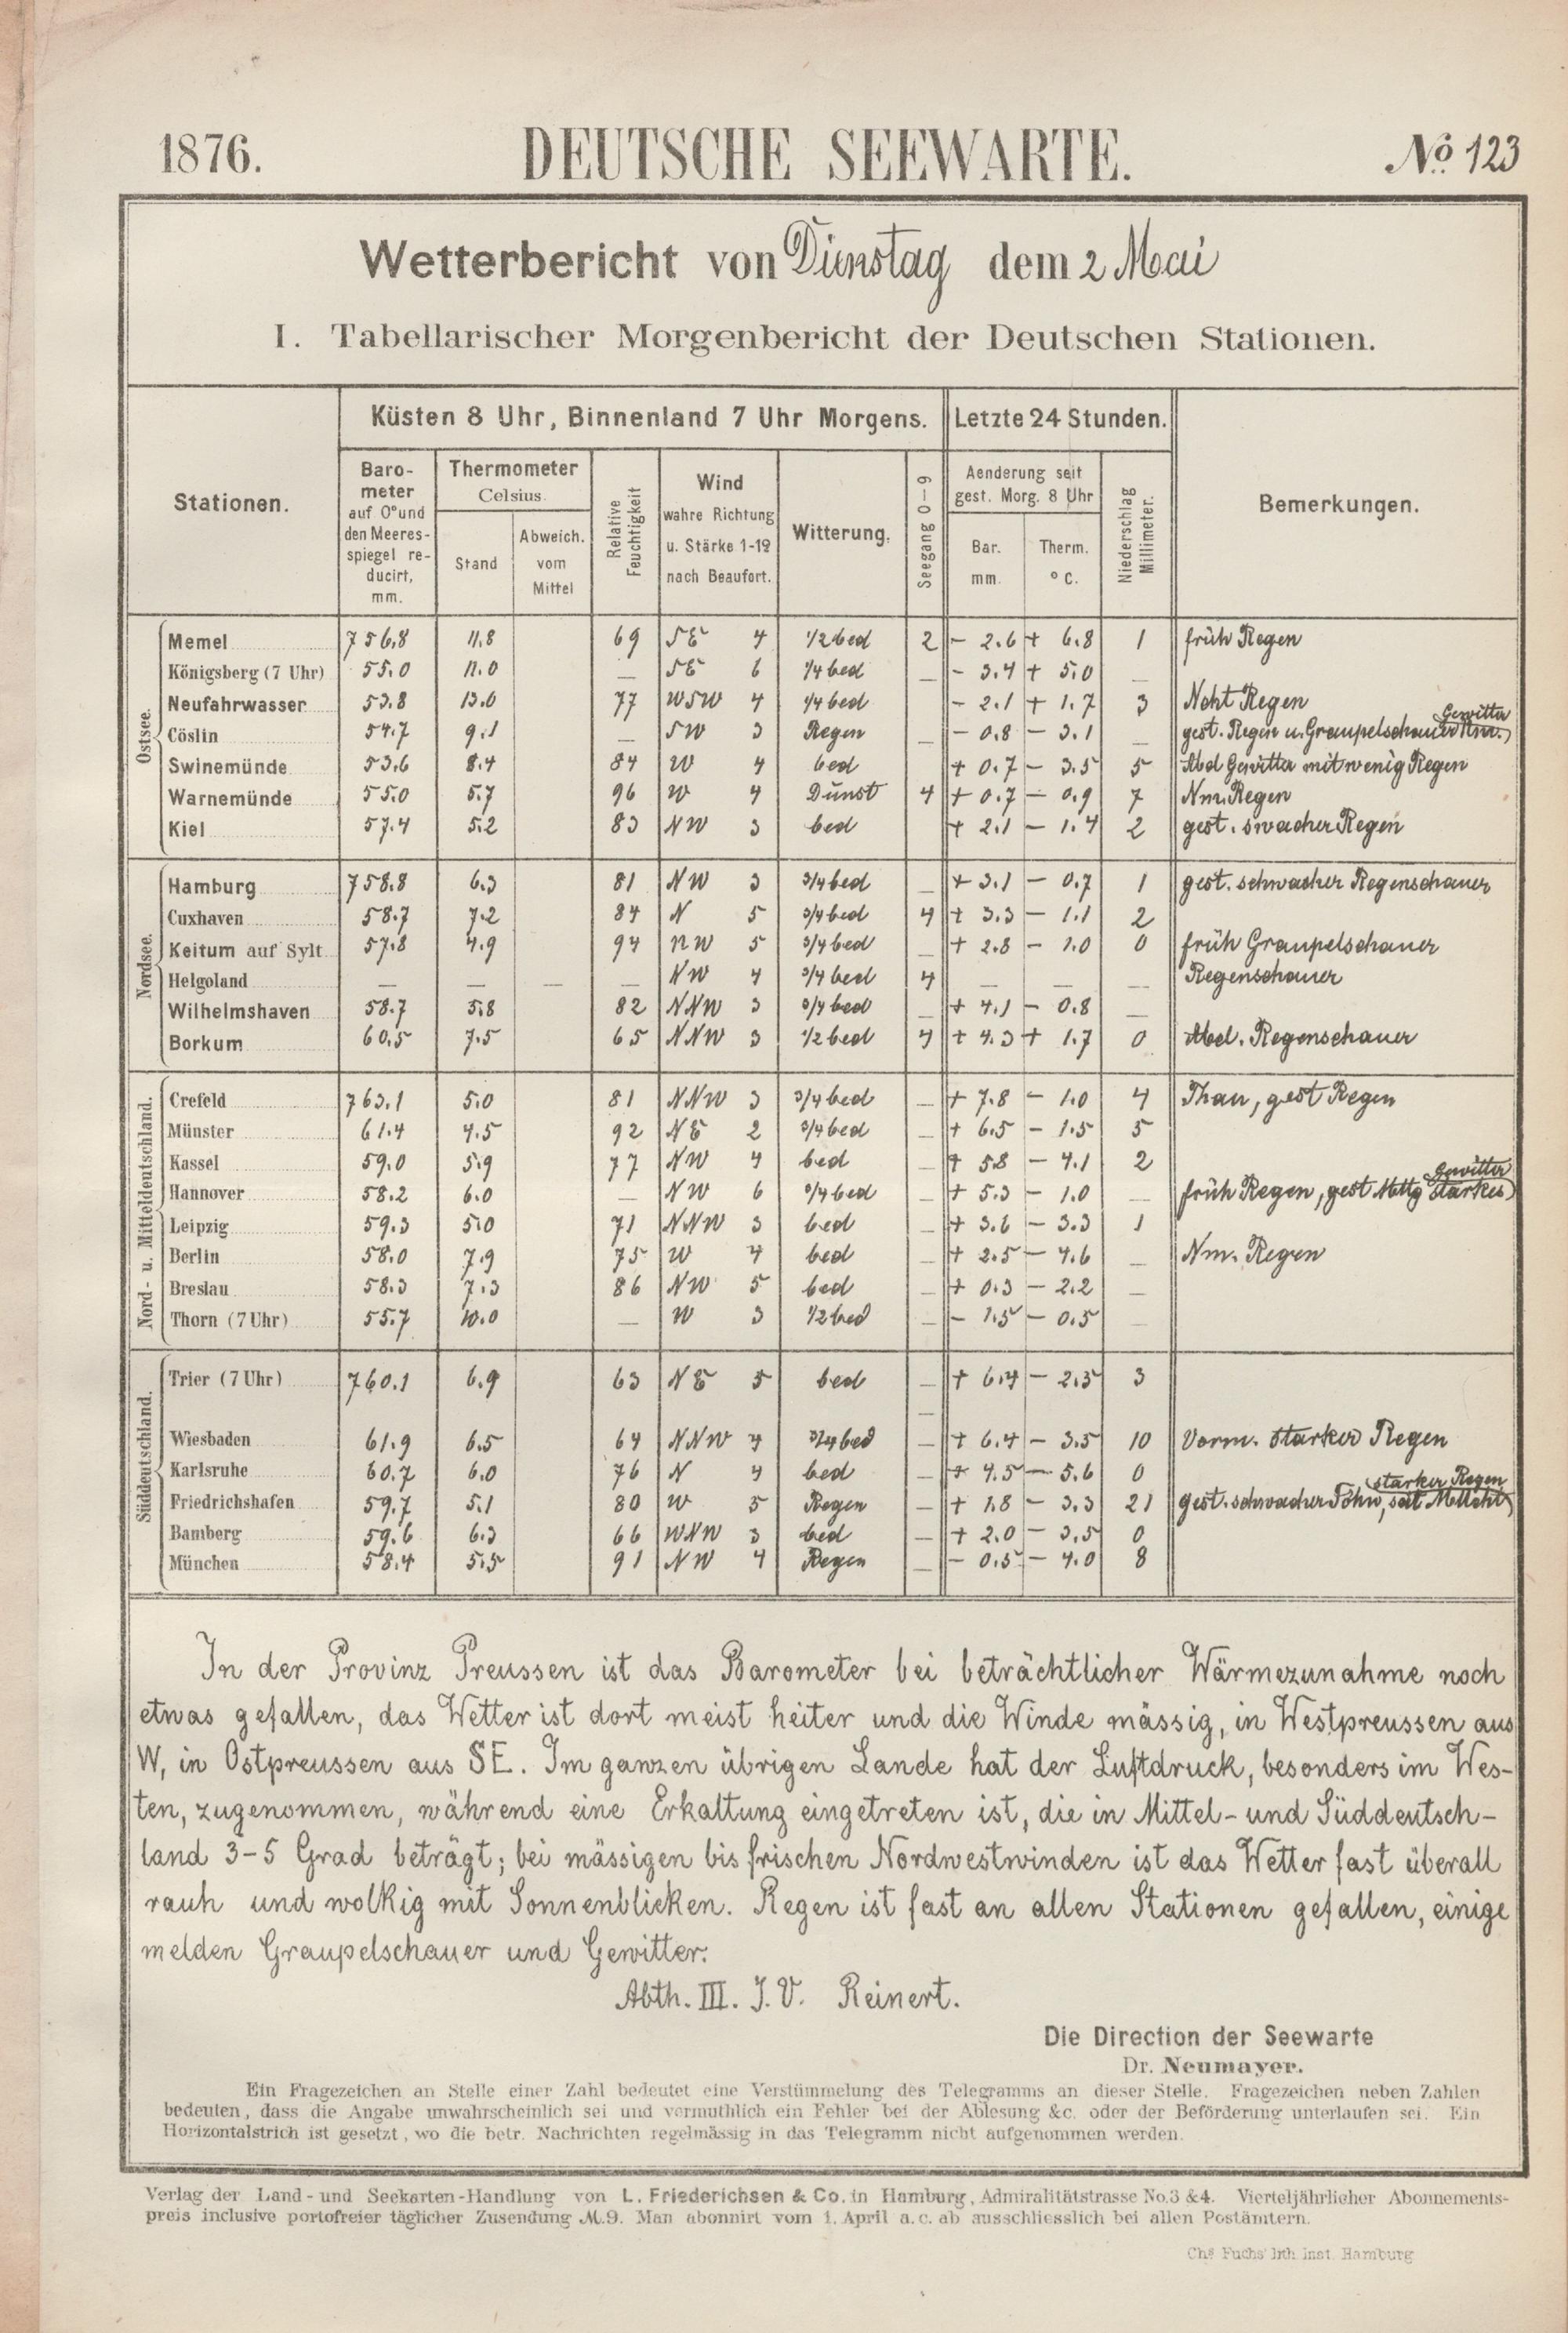 1876. DEUTSCHE SEEWARTE. No. 123
Wetterbericht von Dienstag dem 2 Mai
I. Tabellarischer Morgenbericht der Deutschen Stationen.
Stationen. Küsten 8 Uhr, Binnenland 7 Uhr Morgens. Letzte 24 Stunden. Bemerkungen.
Barometer auf 0° und den Meeresspiegel reducirt, mm. Thermometer Celsius. Stand Abweich. vom Mittel Relative Feuchtigkeit Wind wahre Richtung u. Stärke 1-12 nach Beaufort. Witterung. Seegang 0-9 Aenderung seit gest. Morg. 8 Uhr Bar. mm. Therm. °C. Niederschlag Millimeter.
Ostsee.
Memel 756.8 11.8 69 SE 4 1/2 bed 2 - 2.6 + 6.8 1 früh Regen
Königsberg (7 Uhr) 55.0 11.0 — SE 6 1/4 bed — - 3.4 + 5.0 —
Neufahrwasser 53.8 13.0 77 WSW 4 1/4 bed - 2.1 + 1.7 3 Ncht Regen
Cöslin 54.7 9.1 — SW 3 Regen — - 0.8 - 3.1 — gest. Regen u. Graupelschauer Nm. Gewitter
Swinemünde 53.6 8.4 84 W 4 bed + 0.7 - 3.5 5 Abd Gewitter mit wenig Regen
Warnemünde 55.0 5.7 96 W 4 Dunst 4 + 0.7 - 0.9 7 Nm. Regen
Kiel 57.4 5.2 83 NW 3 bed + 2.1 - 1.4 2 gest. swacher Regen
Nordsee.
Hamburg 758.8 6.3 81 NW 3 3/4 bed — + 3.1 - 0.7 1 gest. schwacher Regenschauer
Cuxhaven 58.7 7.2 84 N 5 3/4 bed 4 + 3.3 - 1.1 2
Keitum auf Sylt 57.8 4.9 94 NW 5 3/4 bed — + 2.8 - 1.0 0 früh Graupelschauer
Helgoland — — — — NW 4 3/4 bed 4 — — — Regenschauer
Wilhelmshaven 58.7 5.8 82 NNW 3 3/4 bed — + 4.1 - 0.8 —
Borkum 60.5 7.5 65 NNW 3 1/2 bed 4 + 4.3 + 1.7 0 Abd. Regenschauer
Nord- u. Mitteldeutschland.
Crefeld 763.1 5.0 81 NNW 3 3/4 bed — + 7.8 - 1.0 4 Thau, gest Regen
Münster 61.4 4.5 92 NE 2 3/4 bed — + 6.5 - 1.5 5
Kassel 59.0 5.9 77 NW 4 bed — + 5.8 - 4.1 2
Hannover 58.2 6.0 — NW 6 3/4 bed — + 5.3 - 1.0 — früh Regen, gest Mttg starkes Gewitter
Leipzig 59.3 5.0 71 NNW 3 bed — + 3.6 - 3.3 1
Berlin 58.0 7.9 75 W 4 bed — + 2.5 - 4.6 — Nm. Regen
Breslau 58.3 7.3 86 NW 5 bed — + 0.3 - 2.2 —
Thorn (7 Uhr) 55.7 10.0 — W 3 1/2 bed — - 1.5 - 0.5 —
Süddeutschland.
Trier (7 Uhr) 760.1 6.9 63 NE 5 bed — + 6.4 - 2.5 3
Wiesbaden 61.9 6.5 64 NNW 4 3/4 bed — + 6.4 - 3.5 10 Vorm. starker Regen
Karlsruhe 60.7 6.0 76 N 4 bed — + 4.5 - 5.6 0
Friedrichshafen 59.7 5.1 80 W 5 Regen — + 1.8 - 3.3 21 gest. schwacher Föhn, seit Mttcht starker Regen
Bamberg 59.6 6.3 66 WNW 3 bed — + 2.0 - 3.5 0
München 58.4 5.5 91 NW 4 Regen — - 0.5 - 4.0 8
In der Provinz Preussen ist das Barometer bei beträchtlicher Wärmezunahme noch
etwas gefallen, das Wetter ist dort meist heiter und die Winde mässig, in Westpreussen aus
W, in Ostpreussen aus SE. Im ganzen übrigen Lande hat der Luftdruck, besonders im Wes-
ten, zugenommen, während eine Erkaltung eingetreten ist, die in Mittel- und Süddeutsch-
land 3-5 Grad beträgt; bei mässigen bis frischen Nordwestwinden ist das Wetter fast überall
rauh und wolkig mit Sonnenblicken. Regen ist fast an allen Stationen gefallen, einige
melden Graupelschauer und Gewitter.
Abth. III. I. V. Reinert.
Die Direction der Seewarte
Dr. Neumayer.
Ein Fragezeichen an Stelle einer Zahl bedeutet eine Verstümmelung des Telegramms an dieser Stelle. Fragezeichen neben Zahlen
bedeuten, dass die Angabe unwahrscheinlich sei und vermuthlich ein Fehler bei der Ablesung &c. oder der Beförderung unterlaufen sei. Ein
Horizontalstrich ist gesetzt, wo die betr. Nachrichten regelmässig in das Telegramm nicht aufgenommen werden.
Verlag der Land- und Seekarten-Handlung von L. Friederichsen & Co. in Hamburg, Admiralitätstrasse No. 3 & 4. Vierteljährlicher Abonnements-
preis inclusive portofreier täglicher Zusendung M. 9. Man abonnirt vom 1. April a. c. ab ausschliesslich bei allen Postämtern.
Chs Fuchs' lith. Inst. Hamburg